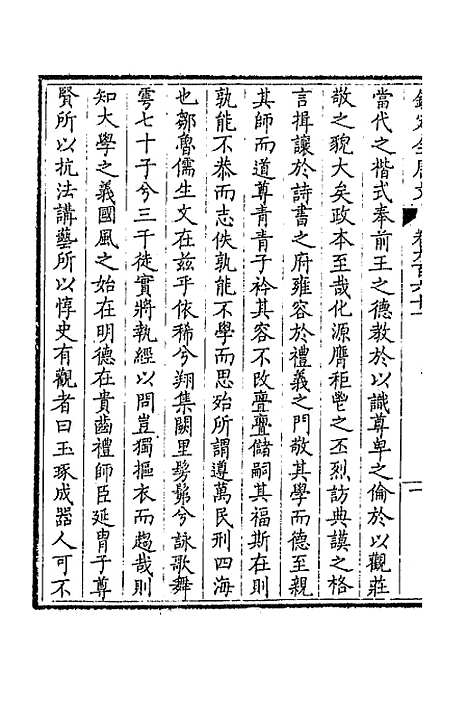 欽定全唐文 卷九百六十一 一
當代之楷式奉前王之德教於以識尊卑之倫於以觀莊
敬之貌大矣政本至哉化源膺秬鬯之丕烈訪典謨之格
言揖讓於詩書之府雍容於禮義之門敬其學而德至親
其師而道尊青青子衿其容不改亹亹儲嗣其福斯在則
孰能不恭而志佚孰能不學而思殆所謂遵萬民刑四海
也鄒魯儒生文在兹乎依稀兮翔集闕里髣髴兮詠歌舞
雩七十子兮三千徒實將執經以問豈獨摳衣而趨哉則
知大學之義國風之始在明德在貴齒禮師臣延胄子尊
賢所以抗法講藝所以惇史有觀者曰玉琢成器人可不